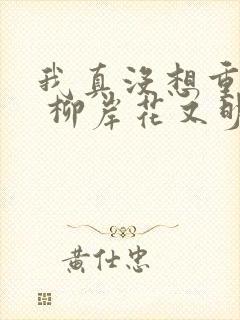 我真没想重
柳岸花又明
黄仕忠